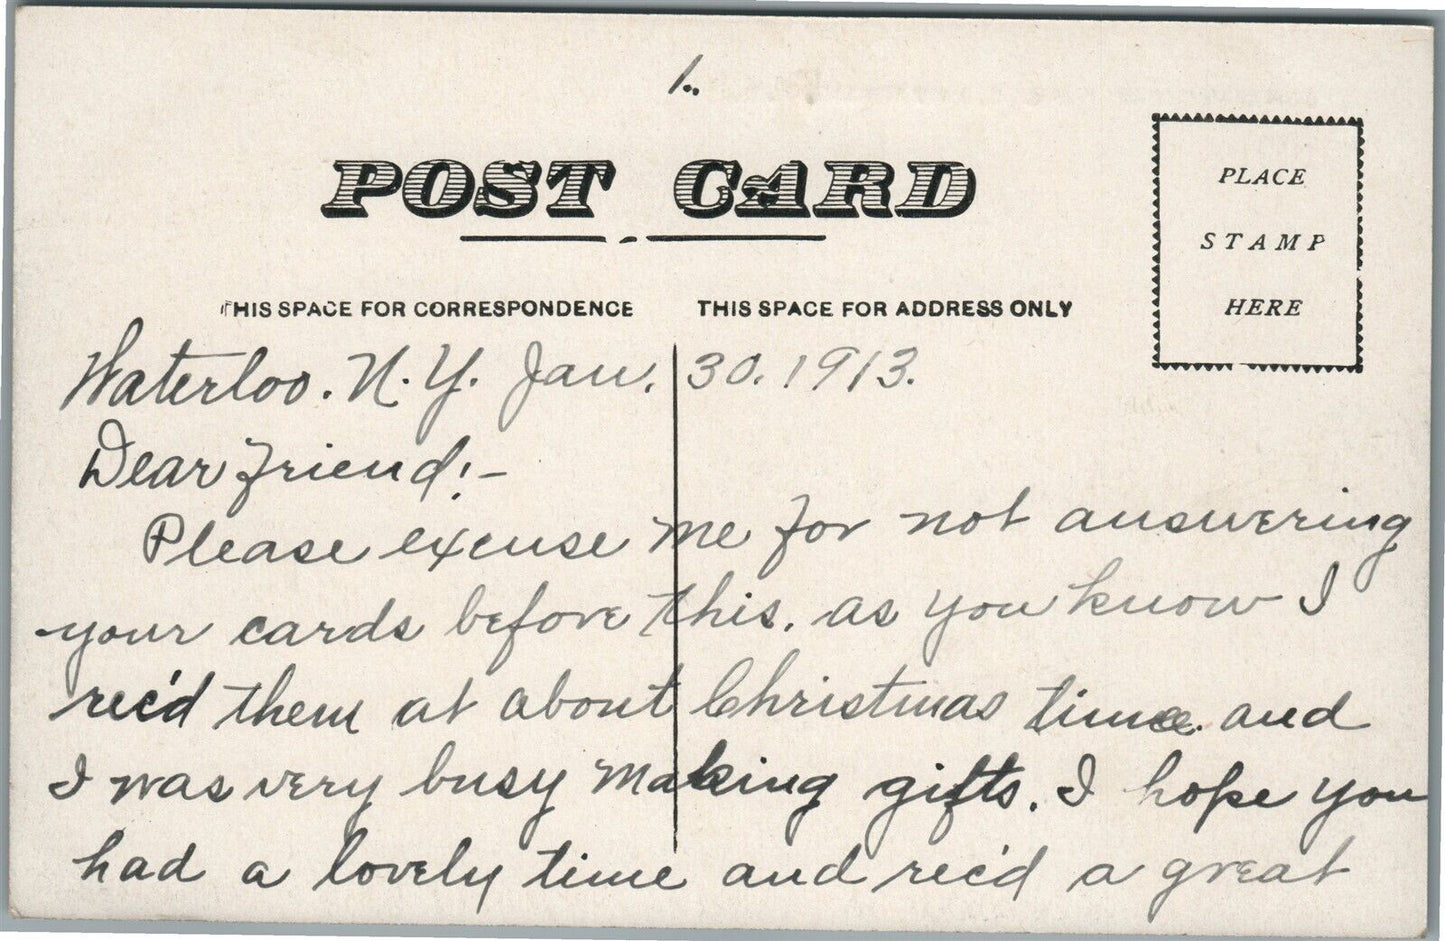 1.
POST CARD
PLACE
STAMP
HERE
THIS SPACE FOR CORRESPONDENCE
THIS SPACE FOR ADDRESS ONLY
Waterloo. N. Y. Jan. 30. 1913.
Dear Friend:-
Please excuse me for not answering
your cards before this. as you know I
rec'd them at about Christmas time. and
I was very busy making gifts. I hope you
had a lovely time and rec'd a great